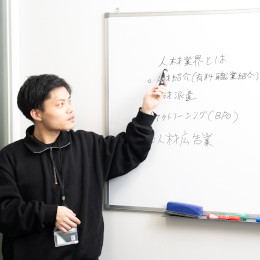 人材業界とは
紹介(有料職業紹介)
派遣
ソーシング(BPO)
人材広告業